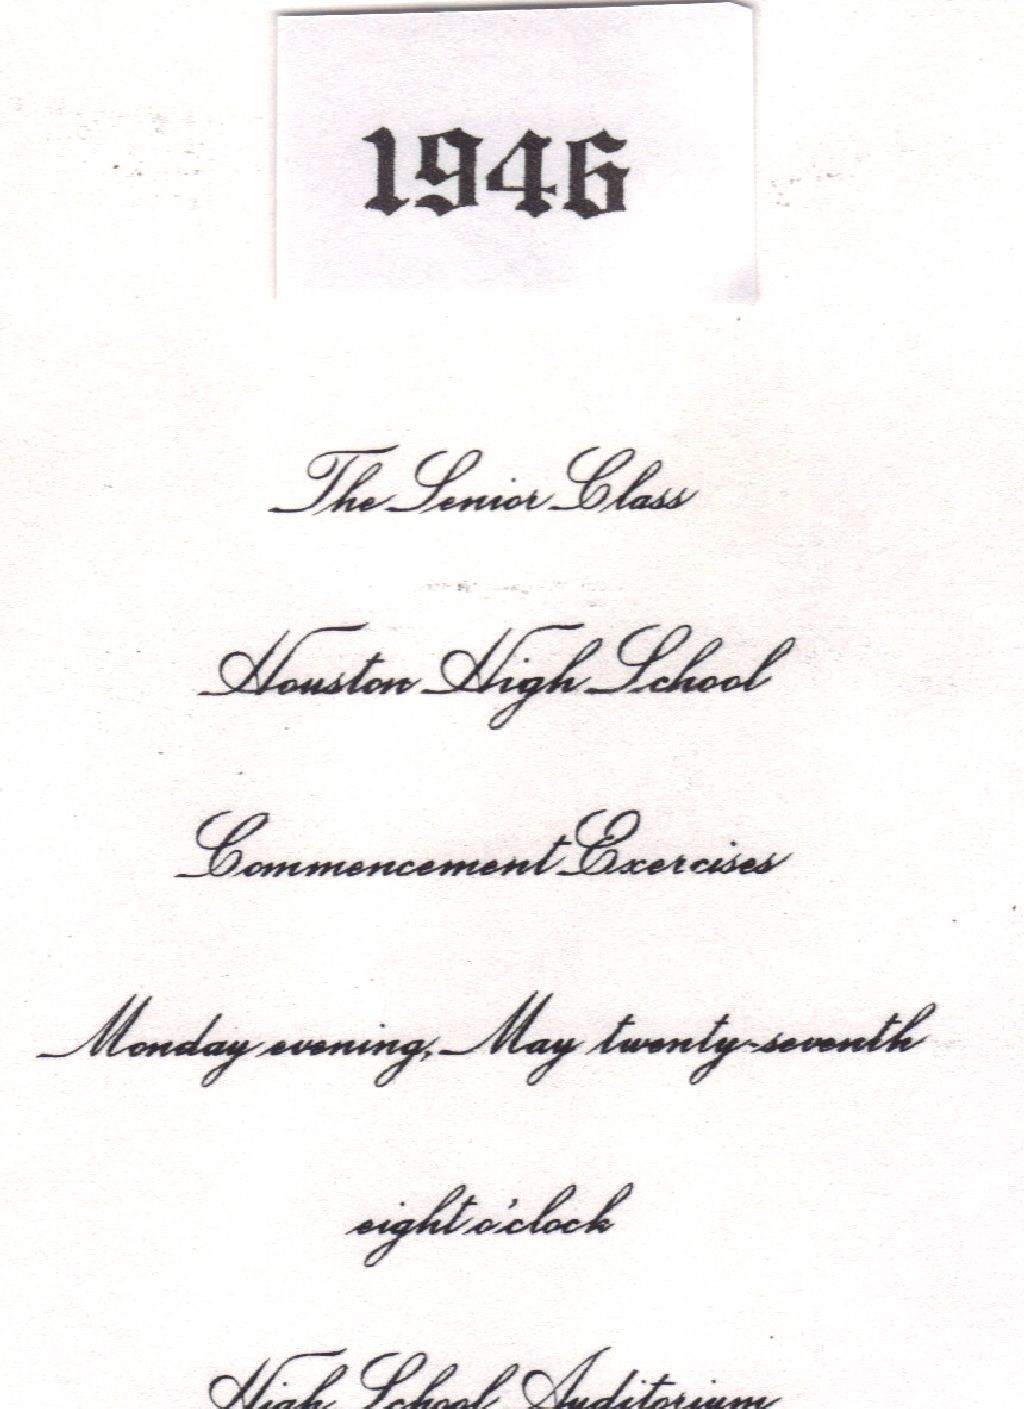 1946
The Senior Class
Houston High School
Commencement Exercises
Monday evening, May twenty-seventh
eight o'clock
High School Auditorium